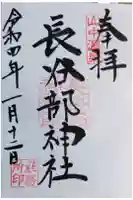 奉拝
長谷部神社
令和四年一月十二日